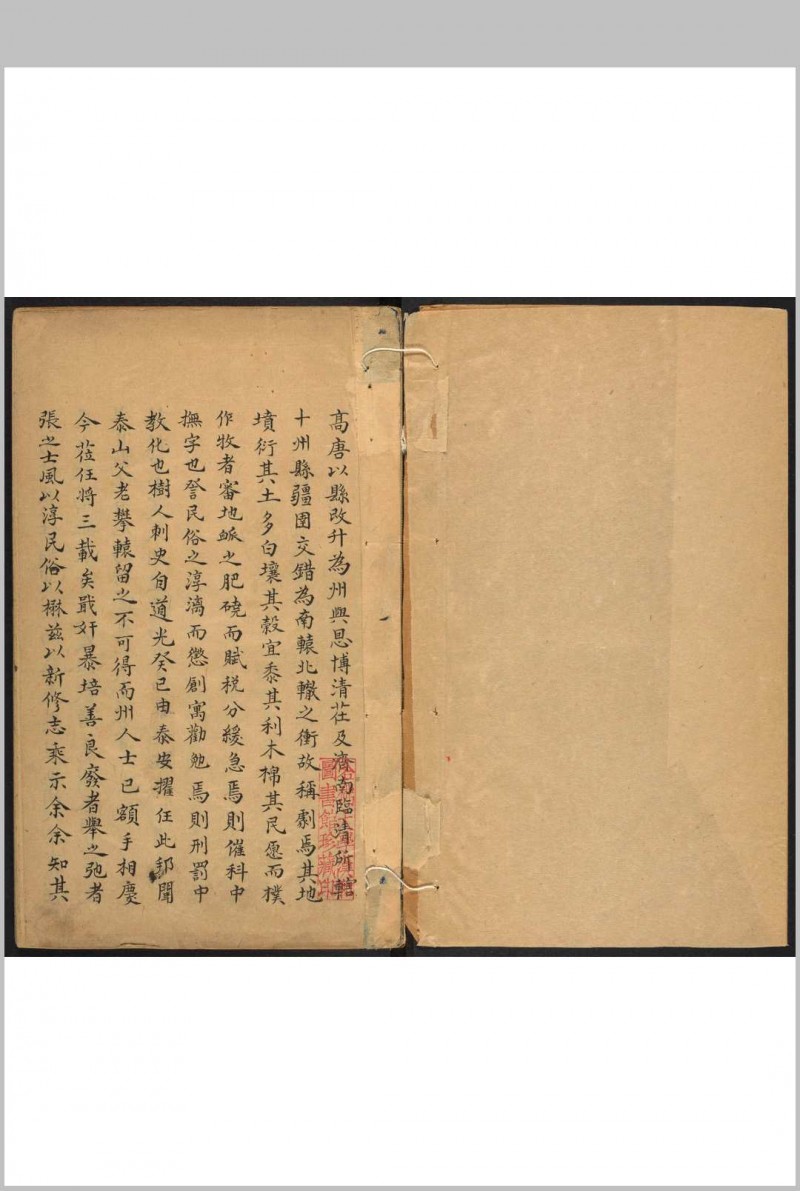 高唐以縣改升為州與恩博清茌及濟南臨清所轄
十州縣疆圉交錯為南轅北轍之衝故稱劇焉其地
墳衍其土多白壤其穀宜黍其利木棉其民愿而樸
作牧者審地脈之肥磽而賦税分緩急焉則催科中
撫字也詧民俗之淳漓而懲創寓勸勉焉則刑罰中
教化也樹人刺史自道光癸巳由泰安擢任此邦聞
泰山父老攀轅留之不可得而州人士已額手相慶
今莅任将三載矣戢奸暴培善良廢者舉之弛者
張之士風以淳民俗以楙兹以新修志乘示余余知其
圖書館珍藏印